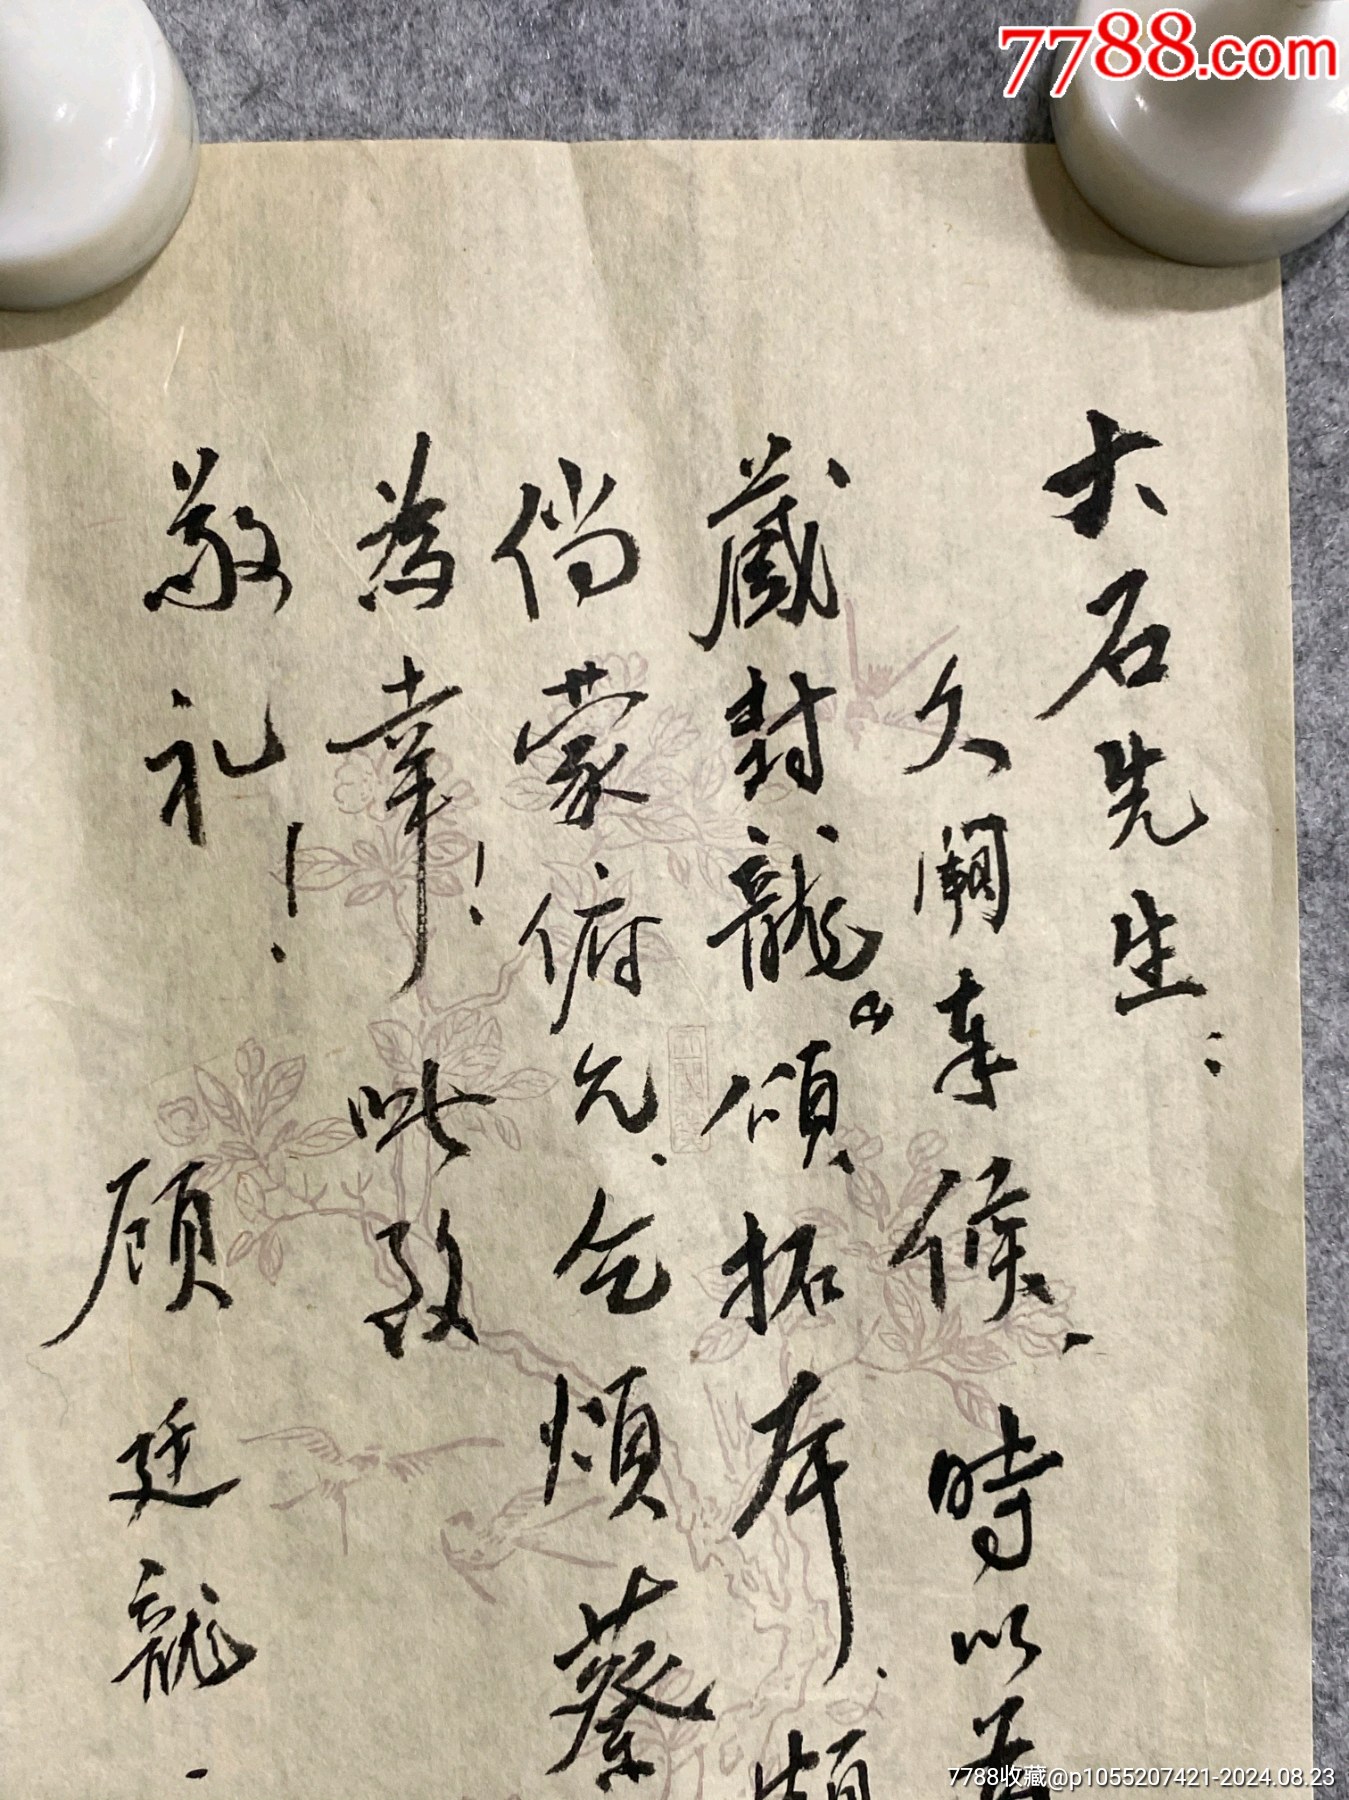 7788.com
大石先生：
久阔幸候、時以為
藏封龍山頌、拓本、頻
倘蒙俯允、乞煩蔡
為幸！此致
敬礼！
顾廷龍.
7788收藏@p1055207421-2024.08.23